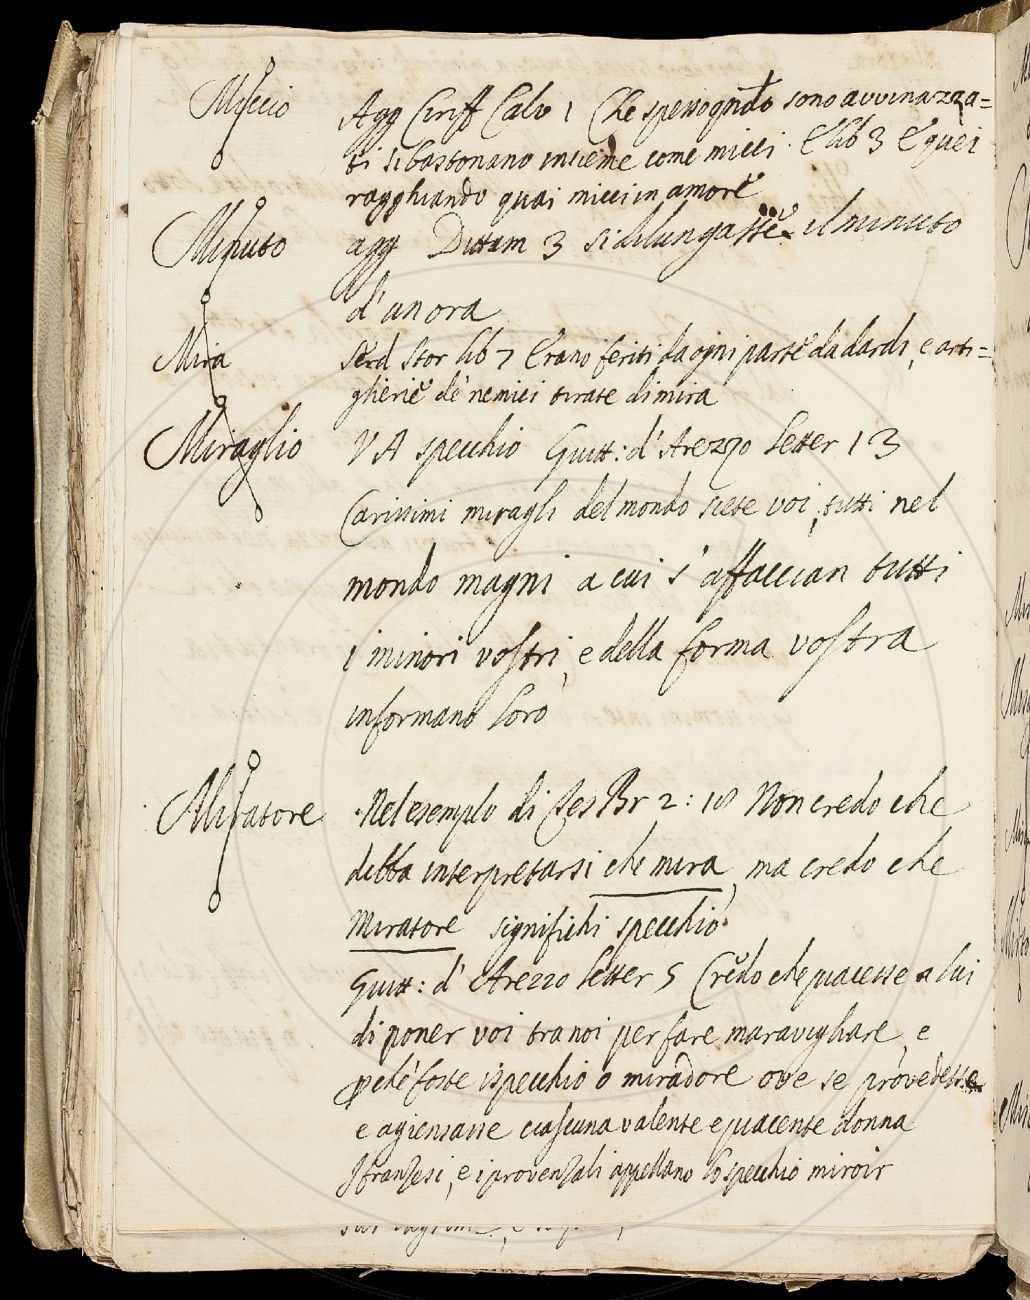 Miccio Agg Ciriff Calv 1 Che spesso qndo sono avvinazza=
ti si bastonano insieme come micci. E lib 3 E quei
ragghiando quai micci in amore
Minuto agg Dittam 3 si dilungasse il minuto
d'un ora
Mira Serd Stor lib 7 Erano feriti da ogni parte da dardi, e arti=
glierie de' nemici tirate di mira
Miraglio V A specchio Guitt: d'Arezzo Letter 13
Carissimi miragli del mondo siete voi, tutti nel
mondo magni a cui s'affaccian tutti
i minori vostri, e della forma vostra
informano loro
Miratore Nel esemplo di Tes Br 2: 18 Non credo che
debba interpretarsi che mira, ma credo che
Miratore significhi specchio.
Guitt: d'Arezzo Letter 5 Credo che piacesse a lui
di poner voi tra noi per fare maravigliare, e
pchè foste ispecchio o miradore ove se provedesse
e agiensasse ciascuna valente e piacente donna
I franzesi, e i provenzali appellano lo specchio miroir